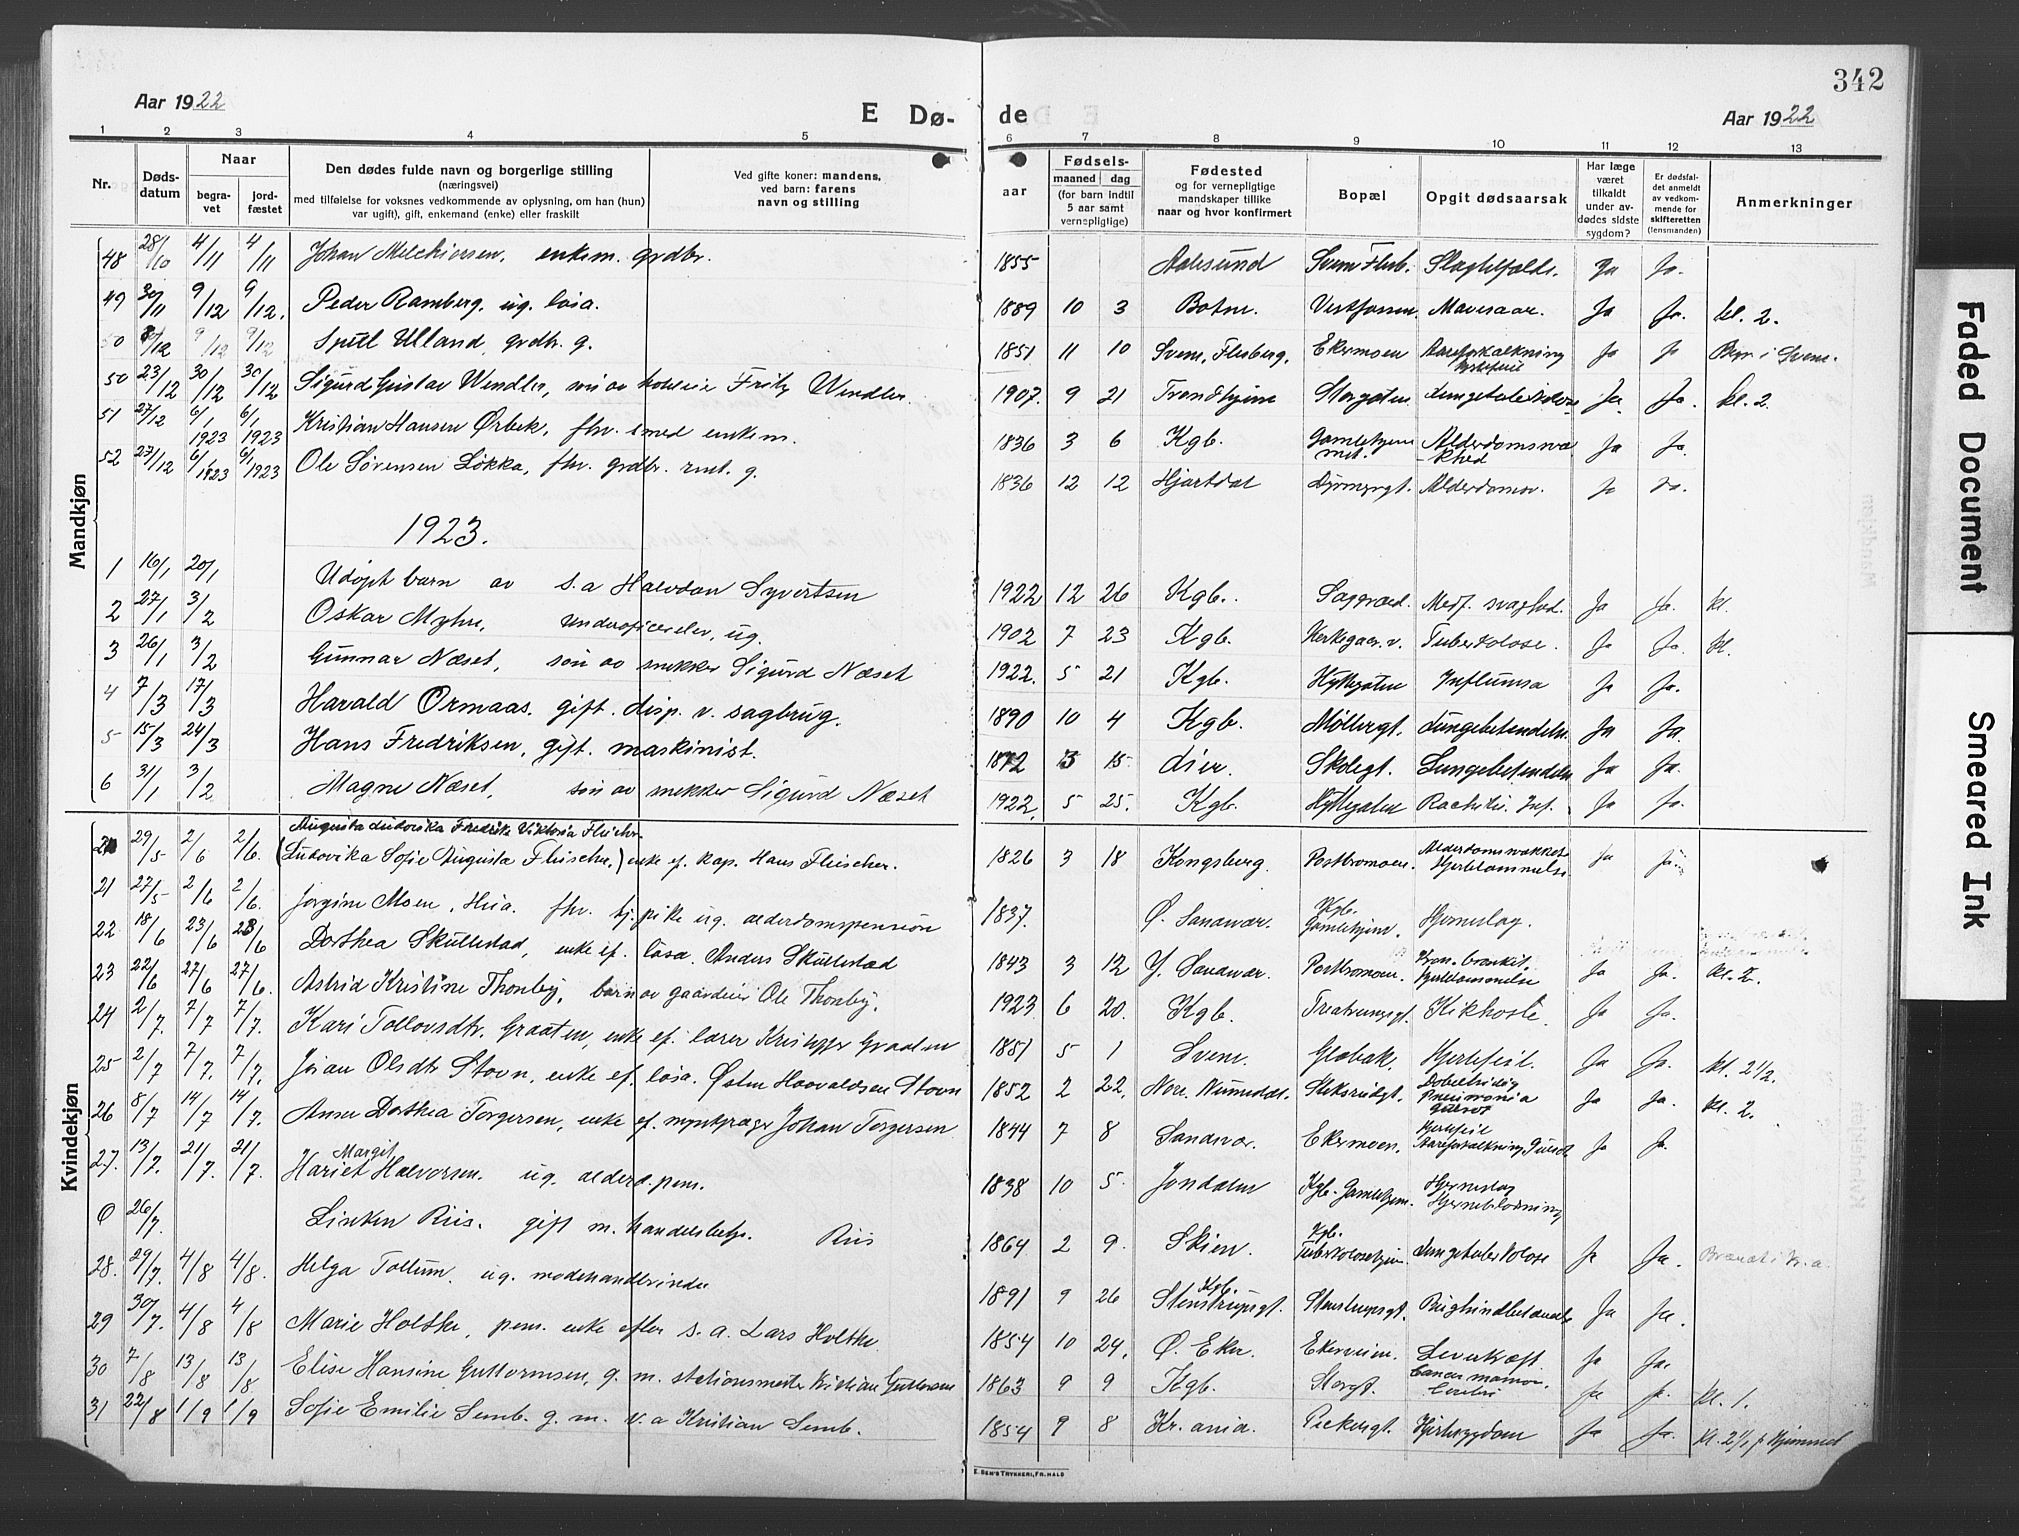 342
Aar 1922 E Dø- de Aar 1922
1 2 3 4 5 6 7 8 9 10 11 12 13
Nr. Døds-datum Naar begra-vet jord-fæstet Den dødes fulde navn og borgerlige stilling (næringsvei) med tilføielse for voksnes vedkommende av oplysning, om han (hun) var ugift), gift, enkemand (enke) eller fraskilt Ved gifte koner: mandens, ved barn: farens navn og stilling aar Fødsels- maaned dag (for barn indtil 5 aar samt vernepligtige) Fødested og for vernepligtige mandskaper tillike naar og hvor konfirmert Bopæl Opgit dødsaarsak Har læge været tilkaldt under av-dødes sidste sygdom? Er dødsfal-det anmeldt av vedkom-mende for skifteretten (lensmanden) Anmerkninger
Mandkjøn
48 28/10 4/11 4/11 Johan Melchiorsen, enkem. grdbr. 1855 Aalesund Svene Flesb. Slagtilfælde. Ja Ja.
49 30/11 9/12 9/12. Peder Ramberg, ug. løsa. 1889 10 3 Botne. Vestfossen. Mavesaar. Ja Ja. kl. 2.
50 /12 9/12 9/12 Ulland, grdbr. g. 1851 11 10 Svene, Flesberg. Ekermoen Aareforkalkning Ja Ja
50 23/12 30/12 30/12 Sigurd Gustav Wendler, søn av Fritz Wendler. 1907. 9 21 Trondhjem Storgaten. Lungetuberkulose Ja. Ja. kl. 2.
51 27/12 6/1 1923 6/1 1923 Kristian Hansen Ørbek, fhv. smed enkem. 1836 3 6 Kgb. Gamlehjemmet. Alderdomssvakhed Ja Ja.
52 27/12 6/1 1923 6/1 1923 Ole Sørensen Løkka, fhv. grdbr. g. 1836 12 12 Hjartdal Alderdomsv. Ja Ja.
1923.
1 16/1 20/1 Udøpt barn av s.a Halvdan Syvertsen 1922 12 26 Kgb. Medf. svaghed. Ja Ja. kl.
2 27/1 3/2 Oskar Myhre, underoficerelev, ug. 1902 7 23 Kgb. Kirkegaar. v. Tuberkulose. Ja Ja. kl.
3 26/1 3/2 Gunnar Næset, søn av snekker Sigurd Næset 1922. 5 21 Kgb. Hyttegaten Influensa Ja Ja.
4 7/3 17/3 Harald Ormaas. gift. disp. v. sagbrug. 1890 10 4 Kgb. Møllergt. Lungebetændelse Ja Ja
5 15/3 24/3 Hans Fredriksen, gift. maskinist. 1872 5 15 Lier. Skolegt. Lungebetændelse Ja Ja.
6 31/1 3/2 Magne Næset, søn av snekker Sigurd Næset 1922. 5 25. Kgb. Hyttegaten Rachitis. Inf. Ja Ja.
Kvindekjøn
20 29/5 2/6 2/6. Augusta Ludovika Fredrike Viktoria Fleischer (Ludovika Sofie Augusta Fleischer,) enke ef. kap. Hans Fleischer. 1826 3 18 Kongsberg. Peckbromoen. Alderdomssvakhet Hjertelammelse Ja Ja.
21 27/5 2/6 2/6. Jørgine Moen, fhv. tj.pike ug. alderdomspension 1837. Ø. Sandsvær. Kgb. Gamlehjem. Hjerneslag.
22 18/6 23/6 23/6 Dorthea Skullestad, enke ef. løsa. Anders Skullestad 1843 3 12 Y. Sandsvær. Hjertelammelse Ja Ja. kl. 2.
23 22/6 27/6 27/6. Astrid Kristine Thonby, barn av gaardeier Ole Thonby. 1923 6 20. Kgb. Kikhoste. Ja Ja.
24 2/7 7/7 7/7. Kari Tollovsdtr. Graaten, enke ef. lærer Kristoffer Graaten 1851 5 1 Svene. Glabak. Hjertefeil. Ja Ja. kl. 2 1/2.
25 2/7 7/7. 7/7. Jøran Olsdtr Stovn, enke ef. løsa. Østen Haavaldsen Stovn 1852 2 22. Nore. Numedal. Dobeltsidig Pneumonia Gulsot Ja Ja. kl. 2.
26 8/7 14/7 14/7. Anne Dorthea Torgersen, enke ef. myntpræger Johan Torgersen 1844 7 8 Sandsvær. Ekermoen. Hjertefeil Aareforkalkning Ja Ja.
27. 13/7. 21/7. 21/7. Hariet Margit Halvorsen. ug. alderd.pens. 1838 10 5. Jondalen Kgb. Gamlehjem. Hjerneslag Hjerneblødning
0 26/7. Linken Riis. gift m. handelsbetj. Riis 1864 2 9. Skien. Kgb. Tuberkulosehjem. Lungetuberkulose Ja Ja. Brændt i Kr.a.
28. 29/7. 4/8 4/8. Helga Tollum. ug. modehandlerinde 1891 9 26 Kgb. Stenstrupsgt. Stenstrupsgt. Brysthindebetændelse Ja Ja.
29 30/7. 4/8 4/8 Marie Holtke, pens. enke efter s. a. Lars Holtke. 1854 10 24. Ø. Eker. Ekerveien. Leverkræft. Ja Ja.
30 7/8 13/8 13/8 Elise Hansine Guttormsen, g. m. stationsmester Kristian Guttormsen 1863 9 9 Kgb. Storgt. Cancer mammae. Ja Ja. kl. 1.
31 22/8 1/9 1/9 Sofie Emilie Semb. g. m. v.a Kristian Semb. 1854 9 8 Kr.ania. Hjertesygdom Ja Ja.
E. SEM'S TRYKKERI, FR.HALD
Faded Document
Smeared Ink